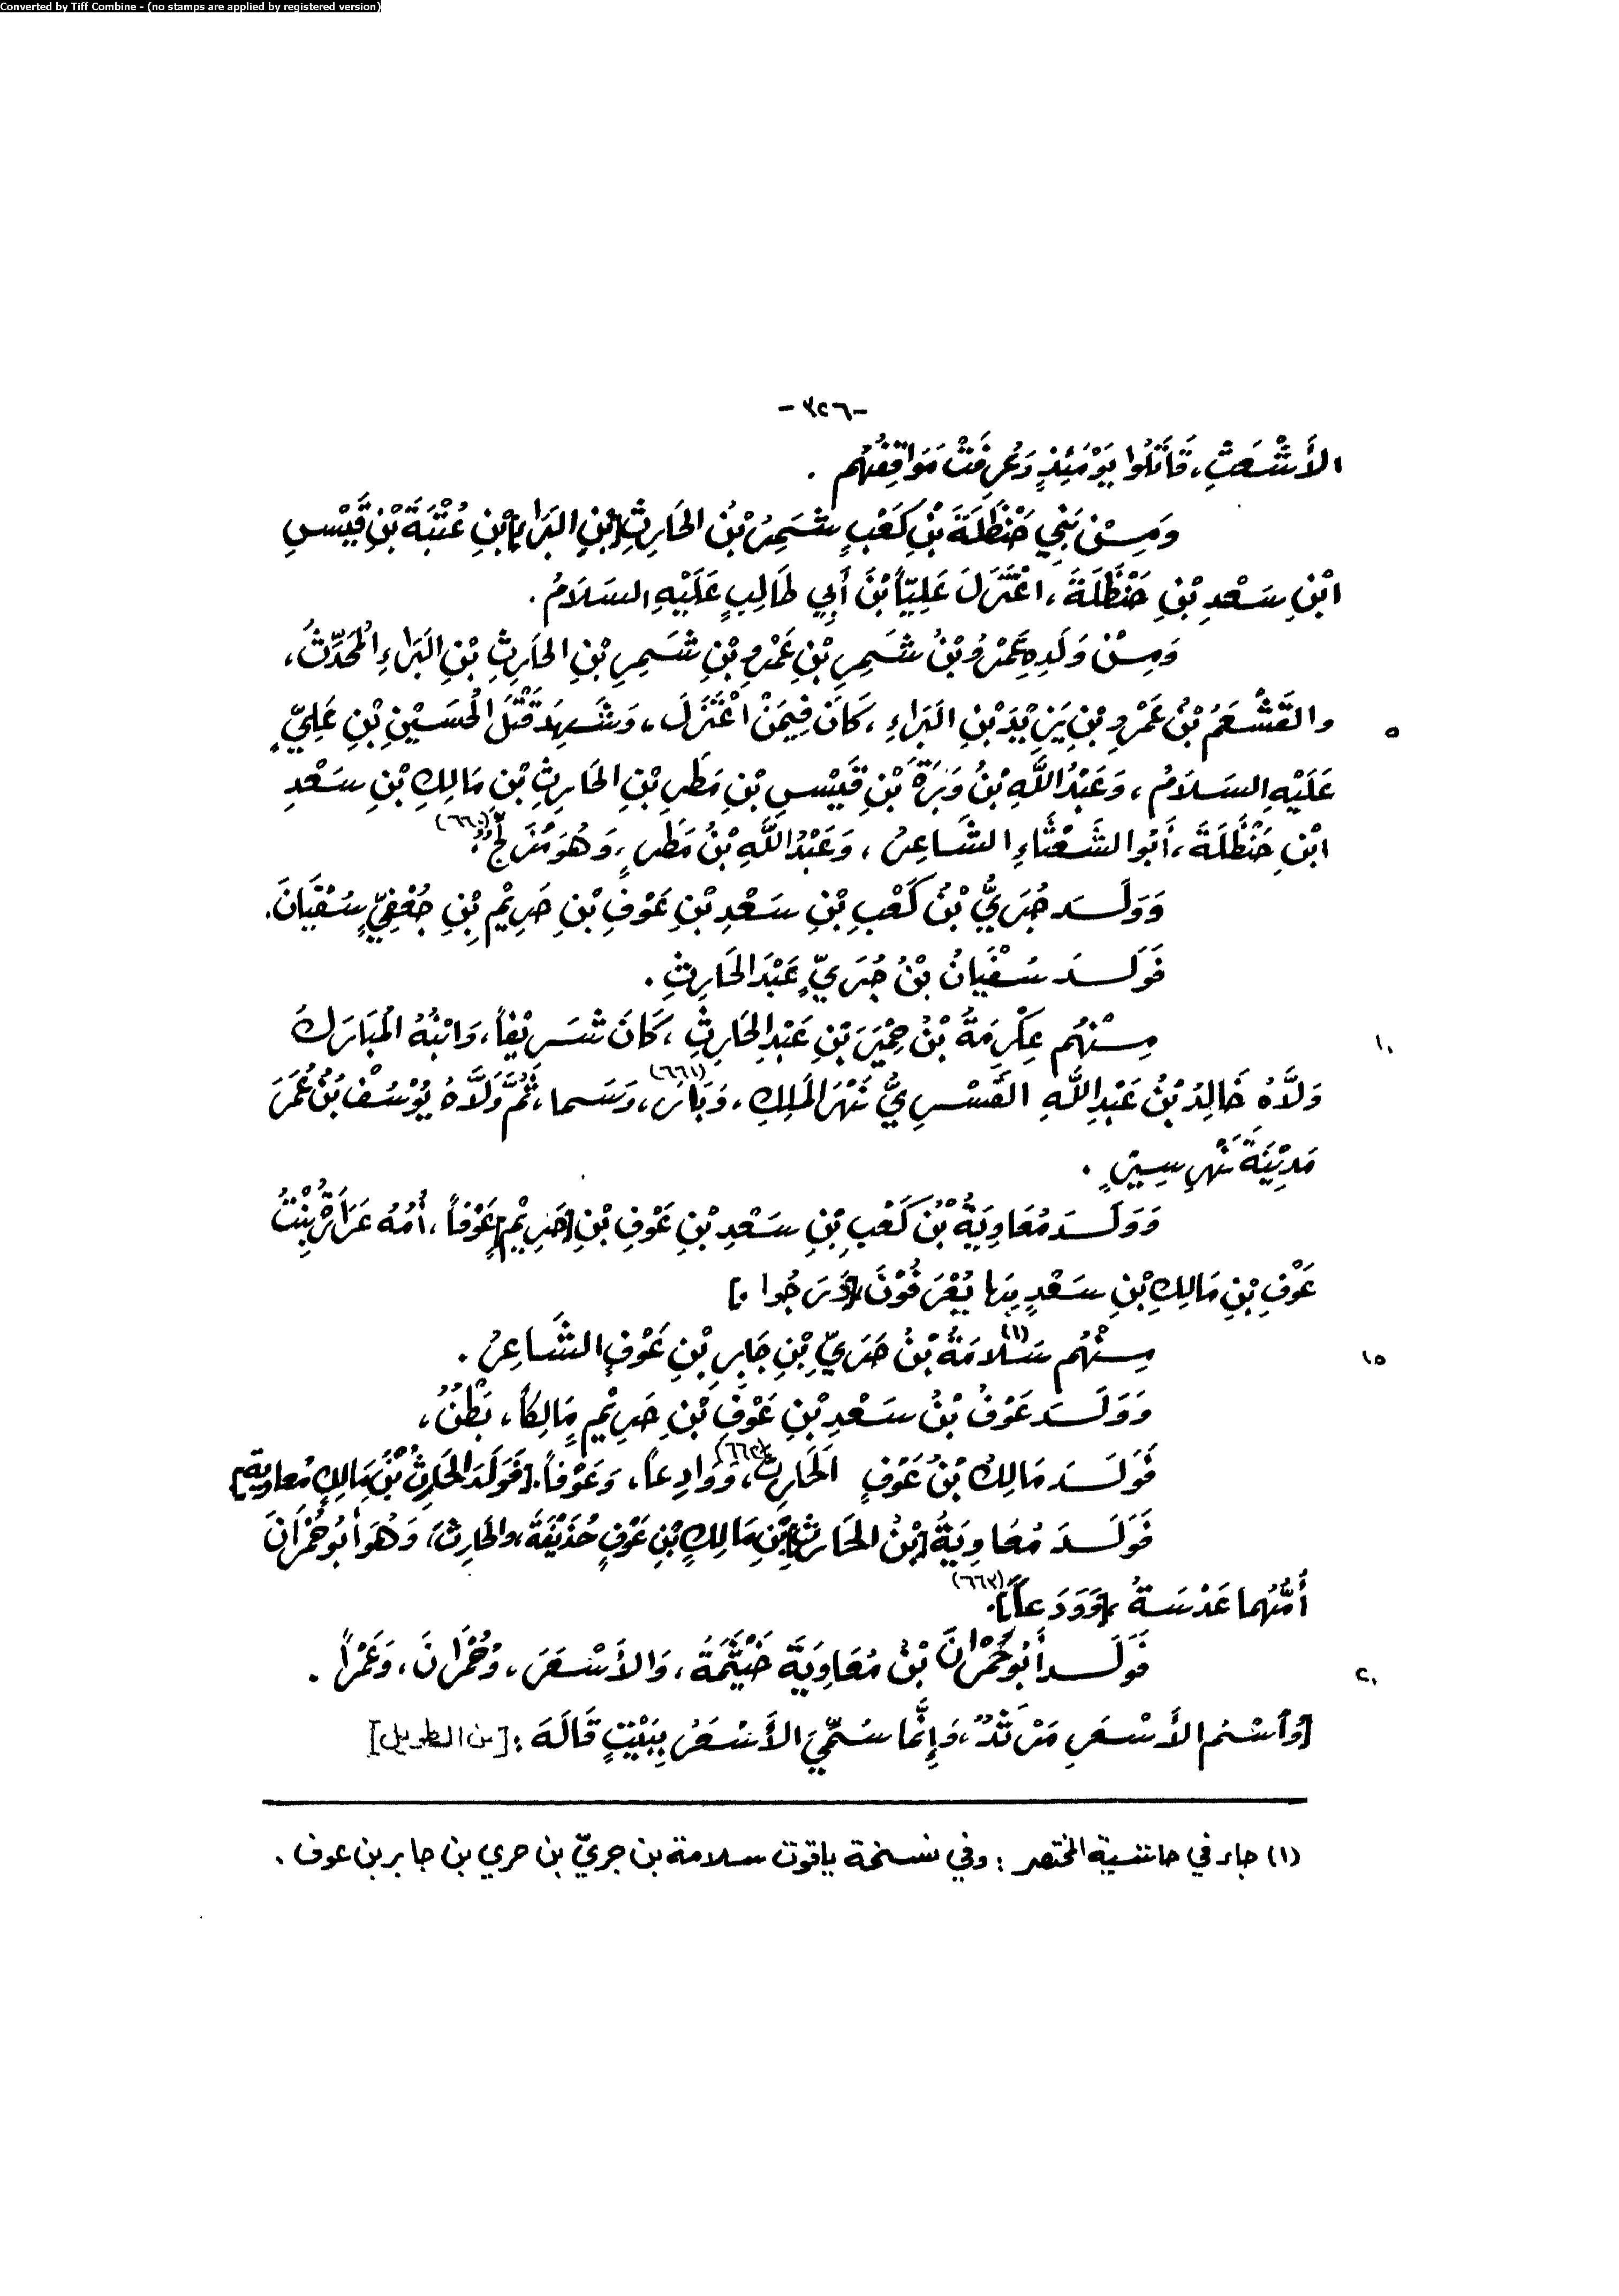 Converted by Tiff Combine - (no stamps are applied by registered version)
-٣٢٦-
الأَشْعَثِ، قَاتَلُوا يَوْمَئِذٍ وَعُرِفَتْ مَوَاقِفُهُم .
وَمِنْ بَنِي حَنْظَلَةَ بْنِ كَعْبٍ شَمِرُ بْنُ الحَارِثِ [بْنِ البَرَاءِ] بْنِ عُتْبَةَ بْنِ قَيْسِ
ابْنِ سَعْدِ بْنِ حَنْظَلَةَ، اعْتَزَلَ عَلِيّاً بْنَ أَبِي طَالِبٍ عَلَيْهِ السَلاَمُ .
وَمِنْ وَلَدِهِ عَمْرُو بْنُ شَمِرِ بْنِ عَمْرِو بْنِ شَمِرِ بْنِ الحَارِثِ بْنِ البَرَاءِ المُحَدِّثُ،
والقَشْعَمُ بْنُ عَمْرِو بْنِ يَزِيْدَ بْنِ البَرَاءِ، كَانَ فِيمَنْ اعْتَزَلَ، وَشَهِدَ قَتْلَ الحُسَيْنِ بْنِ عَلِيٍّ
٥
عَلَيْهِ السَلاَمُ، وَعَبْدُ اللَّهِ بْنُ وَبَرَةَ بْنِ قَيْسِ بْنِ مَطَرِ بْنِ الحَارِثِ بْنِ مَالِكِ بْنِ سَعْدِ
ابْنِ حَنْظَلَةَ، أَبُو الشَعْثَاءِ الشَاعِرُ، وَعَبْدُ اللَّهِ بْنُ مَطَرٍ، وَهُوَ مُزَلِّجٌ (٦٦٠).
وَوَلَدَ جُبَرِيُّ بْنُ كَعْبِ بْنِ سَعْدِ بْنِ عَوْفِ بْنِ حَرِيْمِ بْنِ جُعْفِيٍّ سُفْيَانَ.
فَوَلَدَ سُفْيَانُ بْنُ جُبَرِيٍّ عَبْدَ الحَارِثِ .
مِنْهُم عِكْرِمَةُ بْنُ حِمْيَرَ بْنِ عَبْدِ الحَارِثِ، كَانَ شَرِيْفاً، وَابْنُهُ المُبَارَكُ
١٠
وَلاَّهُ خَالِدُ بْنُ عَبْدِ اللَّهِ القَسْرِيُّ نَهْرَ المَلِكِ، وَبَارَ (٦٦١)، وَسَما، ثُمَّ وَلاَّهُ يُوْسُفُ بْنُ عُمَرَ
مَدِيْنَةَ نَهْرِ سِيْرٍ .
وَوَلَدَ مُعَاوِيَةُ بْنُ كَعْبِ بْنِ سَعْدِ بْنِ عَوْفِ بْنِ [حَرِيْمٍ] عَوْفاً، أُمُّهُ عَرَارَةُ بِنْتُ
عَوْفِ بْنِ مَالِكِ بْنِ سَعْدٍ بِهَا يُعْرَفُوْنَ [دَرَجُوا .]
مِنْهُم سَلاَمَةُ (١) بْنُ حَرِيِّ بْنِ جَابِرِ بْنِ عَوْفٍ الشَاعِرُ .
١٥
وَوَلَدَ عَوْفُ بْنُ سَعْدِ بْنِ عَوْفِ بْنِ حَرِيْمٍ مَالِكاً، بَطْنٌ،
فَوَلَدَ مَالِكُ بْنُ عَوْفٍ الحَارِثَ (٦٦٢)، وَوَادِعاً، وَعَوْفاً. [فَوَلَدَ الحَارِثُ بْنُ مَالِكٍ مُعاوية]
فَوَلَدَ مُعَاوِيَةُ [بْنُ الحَارِثِ] بْنِ مَالِكِ بْنِ عَوْفٍ حُذَيْفَةَ، والحَارِثَ، وَهُوَ أَبُو حُمْرَانَ
أُمُّهُما عَدَسَةُ [وَوَدَعاً] (٦٦٣).
فَوَلَدَ أَبُو حُمْرَانَ بْنُ مُعَاوِيَةَ خَيْثَمَةَ، وَالأَسْعَرَ، وَحُمْرَانَ، وَعَمْراً .
٢٠
[وَاسْمُ الأَسْعَرِ مَرْثَدٌ، وَإِنَّمَا سُمِّيَ الأَسْعَرُ بِبَيْتٍ قَالَهُ : [من الطويل]
(١) جاء في حاشية المختصر : وفي نسخة ياقوت سلامة بن جريّ بن حري بن جابر بن عوف .